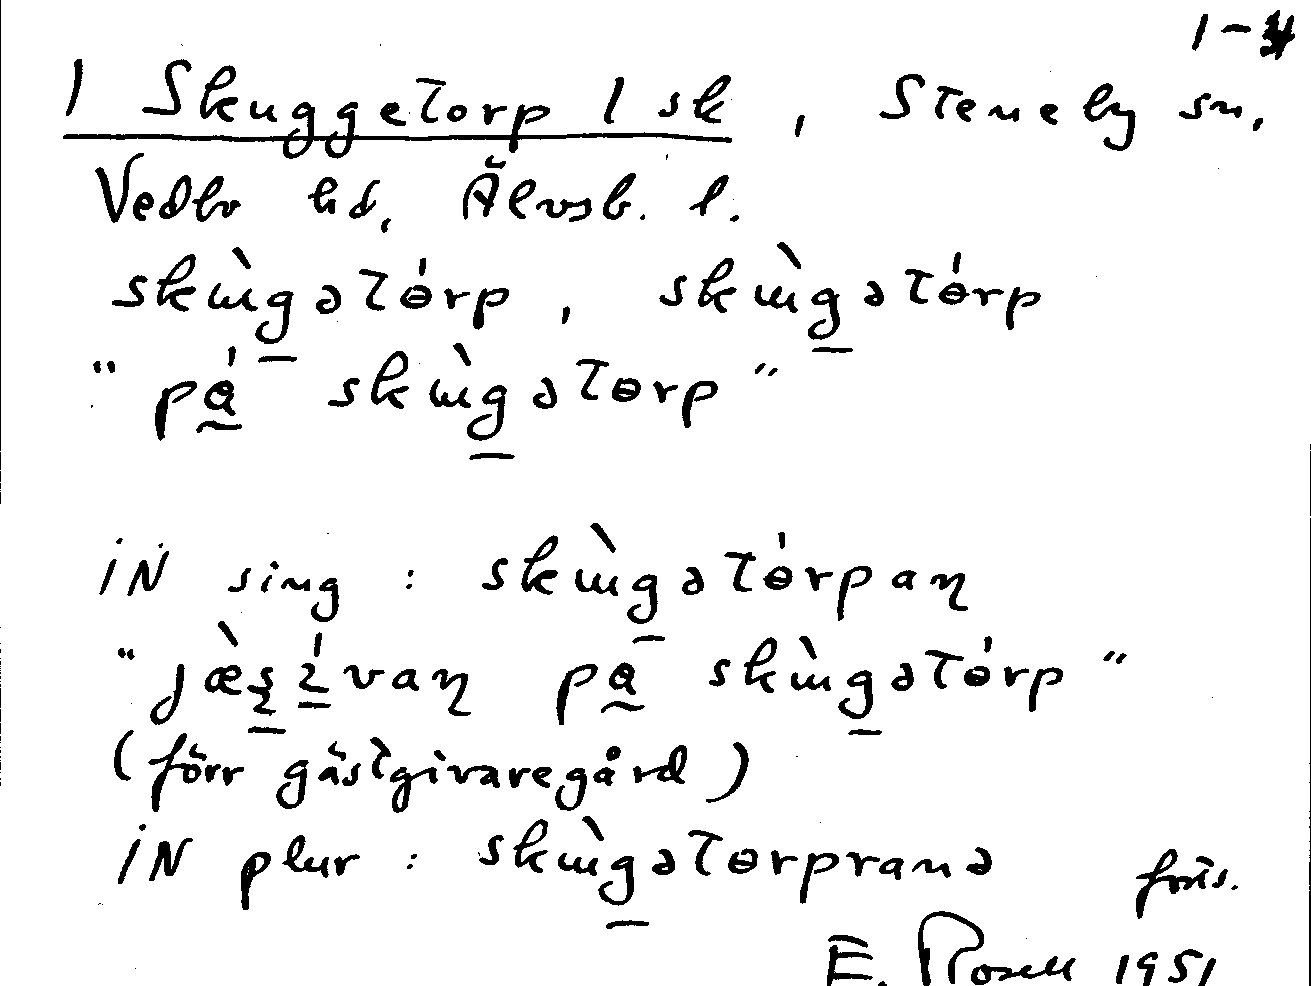 1-4
1 Skuggetorp 1 sk, Steneby sn,
Vedbo hd, Älvsb. l.
skɯ̀gətɵ́rp, skɯ̀gətɵ́rp
"pá skɯ̀gətɵrp"
iN sing: skɯ̀gətɵ́rpaɳ
"jæ̀ʂívaɳ pa skɯ̀gətɵ́rp"
(förr gästgivaregård)
iN plur: skɯ̀gətɵrpranə
E. Rosell 1951